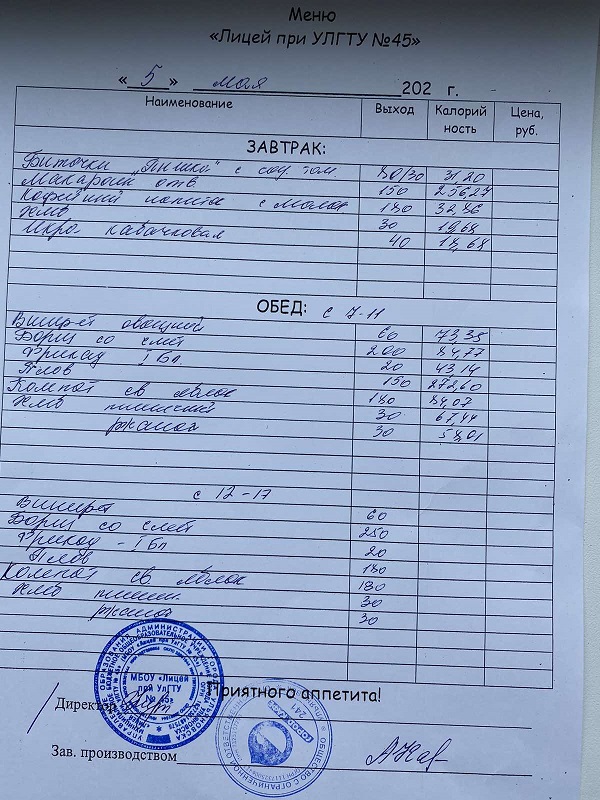 Меню
«Лицей при УЛГТУ №45»
« 5 » мая 202 г.
Наименование Выход Калорийность Цена, руб.
ЗАВТРАК:
Биточки с соус том 80/30
Макароны отв 150
Кофейный напиток с молок 180 32,86
Хлеб 30
Икра кабачковая 40 18,68
ОБЕД: с 7-11
Винегрет овощной 60 73,35
Борщ со смет 200 84,77
Фрикад I Бл 20 43,14
Плов 150 272,60
Компот св яблок 180 84,07
Хлеб пшеничный 30 67,44
ржаной 30 58,01
с 12-17
Винегрет 60
Борщ со смет 250
Фрикад - I Бл 20
Плов 180
Компот св яблок 180
Хлеб пшенич. 30
ржаной 30
Приятного аппетита!
МБОУ «Лицей
при УлГТУ
№ 45»
Директор
241
Зав. производством